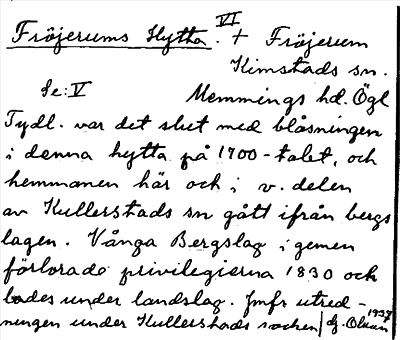 VI
Fröjerums Hytta. + Fröjerum
Kimstads sn.
Se: V Memmings hd. Ögl
Tydl. var det slut med blåsningen
i denna hytta på 1700-talet, och
hemmanen här och i v. delen
av Kullerstads sn gått ifrån bergs
lagen. Vånga Bergslag i gemen
förlorade privilegierna 1830 och
lades under landslag. Jmfr utred-
ningen under Kullerstads socken 1937